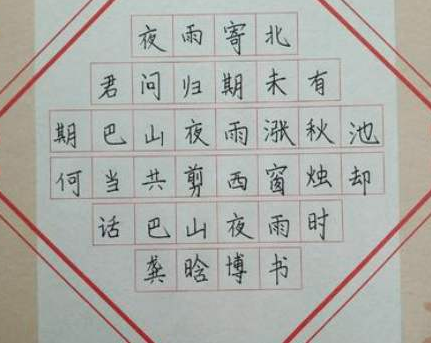 夜雨寄北
君问归期未有
期巴山夜雨涨秋池
何当共剪西窗烛却
话巴山夜雨时
龚晗博书